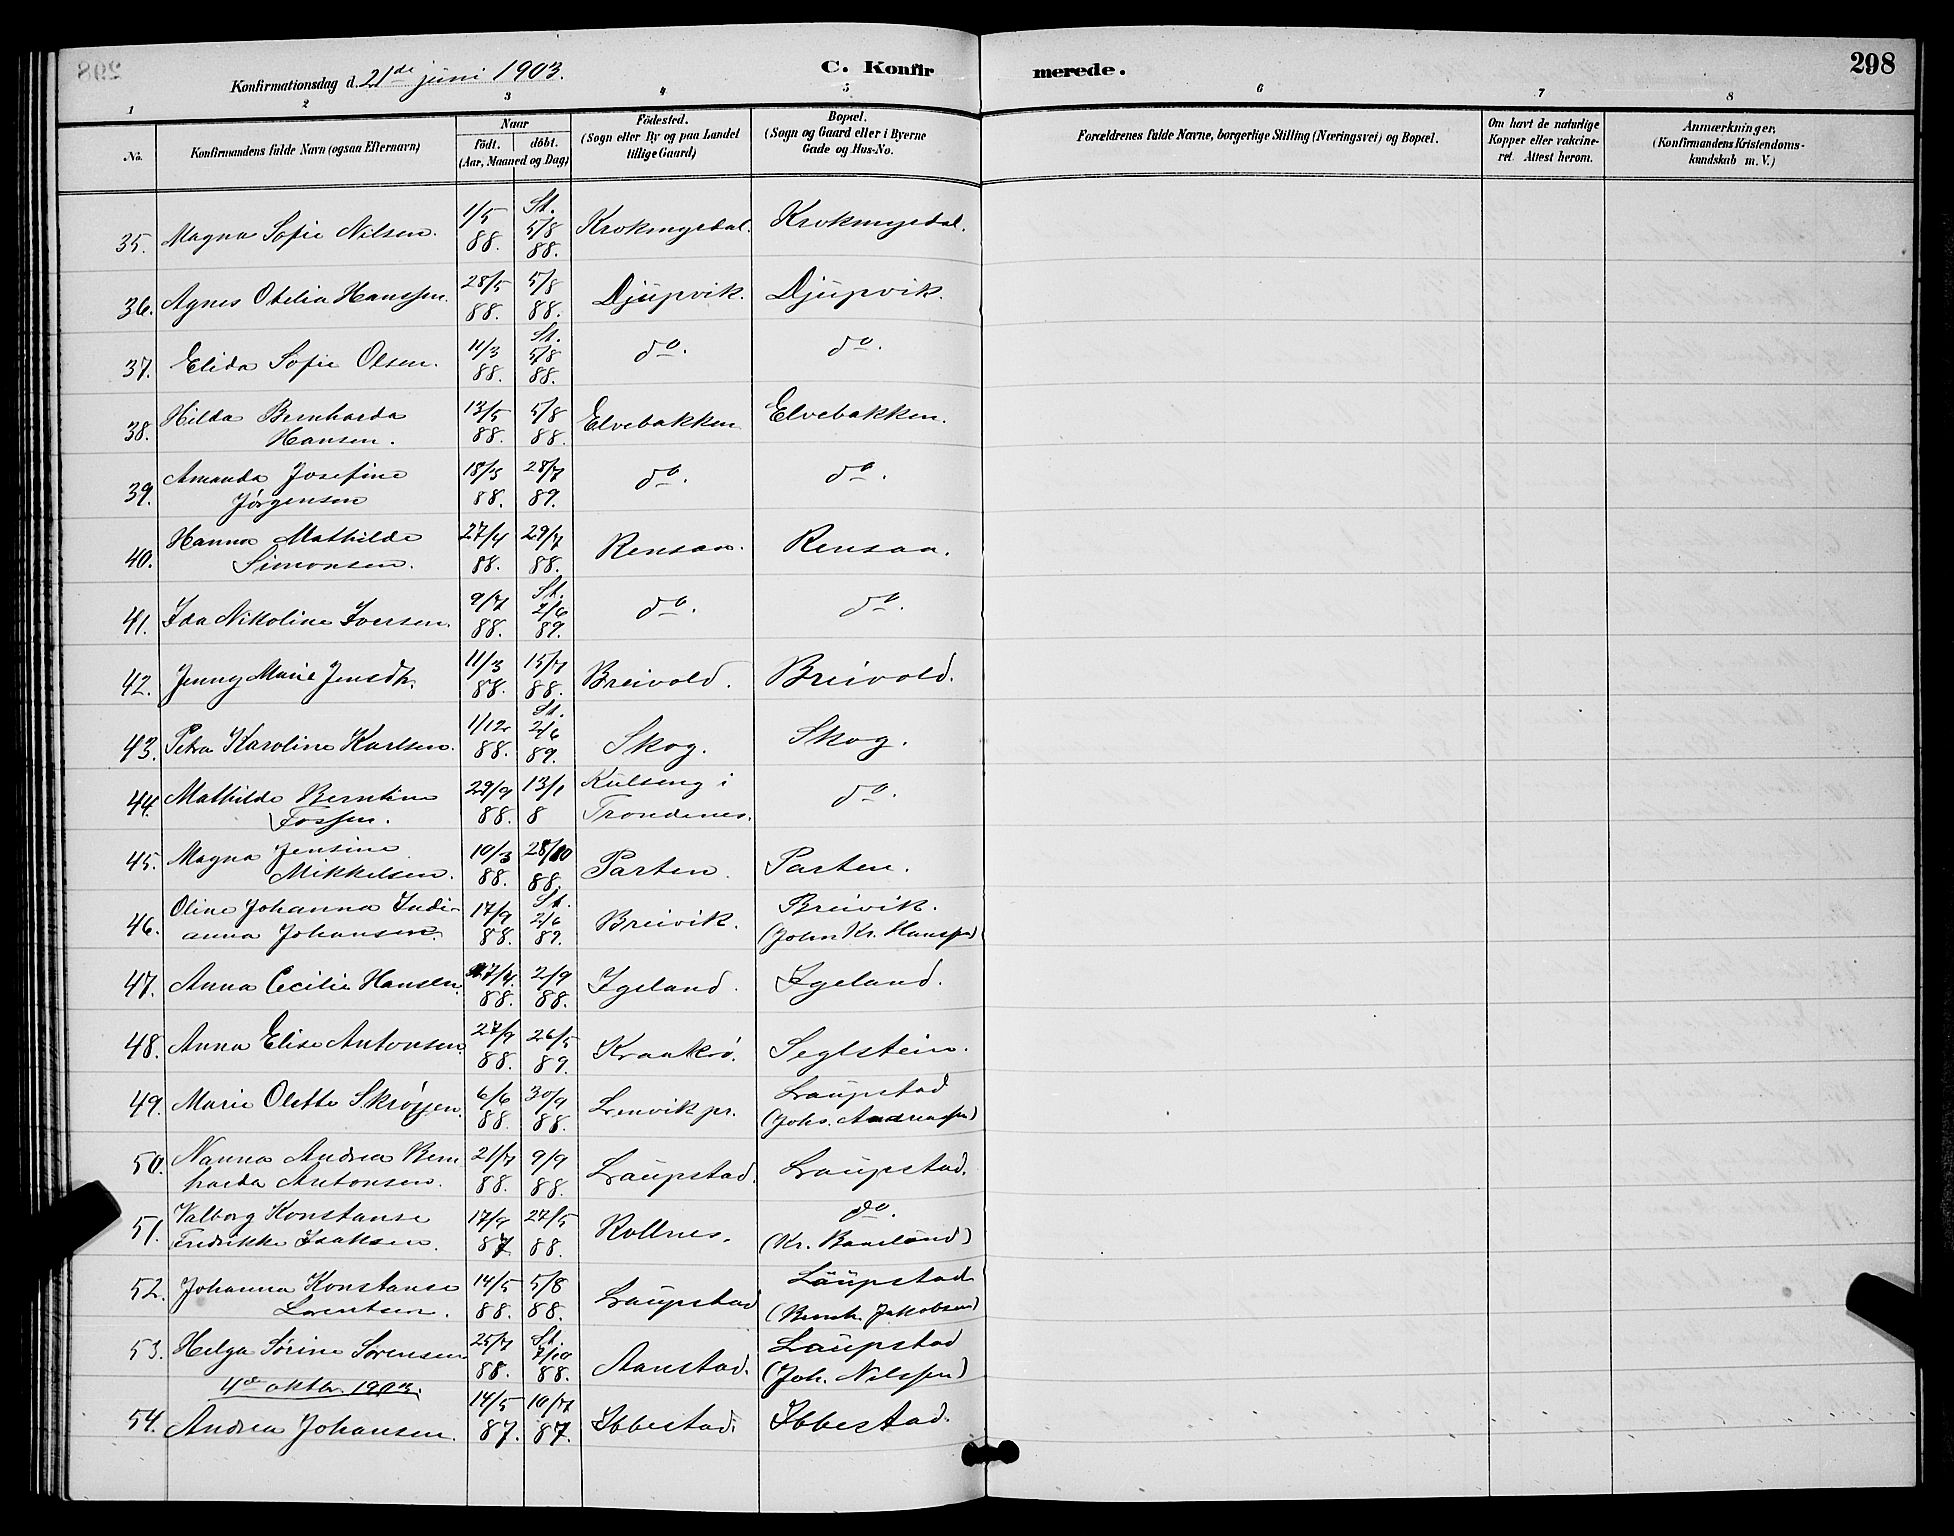 298
Konfirmationsdag d. 21de juni 1903.
C. Konfirmerede.
298
1 2 3 4 5 6 7 8
No.
Konfirmandens fulde Navn (ogsaa Efternavn)
Naar
födt. döbt.
(Aar, Maaned og Dag)
Födested.
(Sogn eller By og paa Landet
tillige Gaard)
Bopæl.
(Sogn og Gaard eller i Byerne
Gade og Hus-No.
Forældrenes fulde Navne, borgerlige Stilling (Næringsvei) og Bopæl.
Om havt de naturlige
Kopper eller vakcine-
ret. Attest herom.
Anmærkninger,
(Konfirmandens Kristendoms-
kundskab m. V.)
35. Magna Sofie Nilsen. 1/5 88. St. 5/8 88. Krokmyrdal. Krokmyrdal.
36. Agnes Otelia Hanssen. 28/5 88. 5/8 88. Djupvik. Djupvik.
37. Elida Sofie Olsen. 11/3 88. St. 5/8 88. do. do.
38. Hilda Bernharda 13/5 5/8 Elvebakken Elvebakken.
Hansen. 88. 88.
39. Amanda Josefine 18/5 28/7 do. do.
Jørgensen 88. 89.
40. Hanna Mathilde 27/4 29/7 Rensaa. Rensaa.
Simonsen. 88. 88.
41. Ida Nikoline Iversen. 9/7 88. St. 2/6 89. do. do.
42. Jenny Marie Jensdtr. 11/3 88. 15/7 88. Breivold. Breivold.
43. Petra Karoline Karlsen. 1/12 88. St. 2/6 89. Skog. Skog.
44. Mathilde Berntine 29/9 13/1 Kulseng i do.
Fossen. 88. 8 Trondenes.
45. Magna Jensine 10/3 28/10 Parten. Parten.
Mikkelsen. 88. 88.
46. Oline Johanna Indi- 17/9 St. 2/6 Breivik. Breivik.
anna Johansen. 88. 89. (John Kr. Hanssen)
47. Anna Cecilie Hansen. 27/4. 88. 2/9 88. Igeland. Igeland.
48. Anna Elise Antonsen. 27/9 88. 26/5 89. Kraakrø. Seglstein.
49. Marie Olette Skrøpen. 6/6 30/9 Lenvik pr. Laupstad
88. 88. (Johs. Andreassen)
50. Nanna Andrea Bern 21/7 9/9 Laupstad. Laupstad.
harda Antonsen. 88. 88.
51. Valborg Konstanse 17/9 27/5 Rollnes. do.
Fredrikke Isaksen. 87 88. (Kr. Baarlund)
52. Johanna Konstanse 14/5 5/8 Laupstad Laupstad
Lorentsen. 88. 88. (Bernh. Jakobsen)
53. Helga Sørine Sørensen 25/7 88. St. 7/10 88. Aanstad. Laupstad
(Joh. Nilssen)
4de oktbr. 1903.
54. Andrea Johansen. 14/5 87. 10/7 87. Ibbestad. Ibbestad.